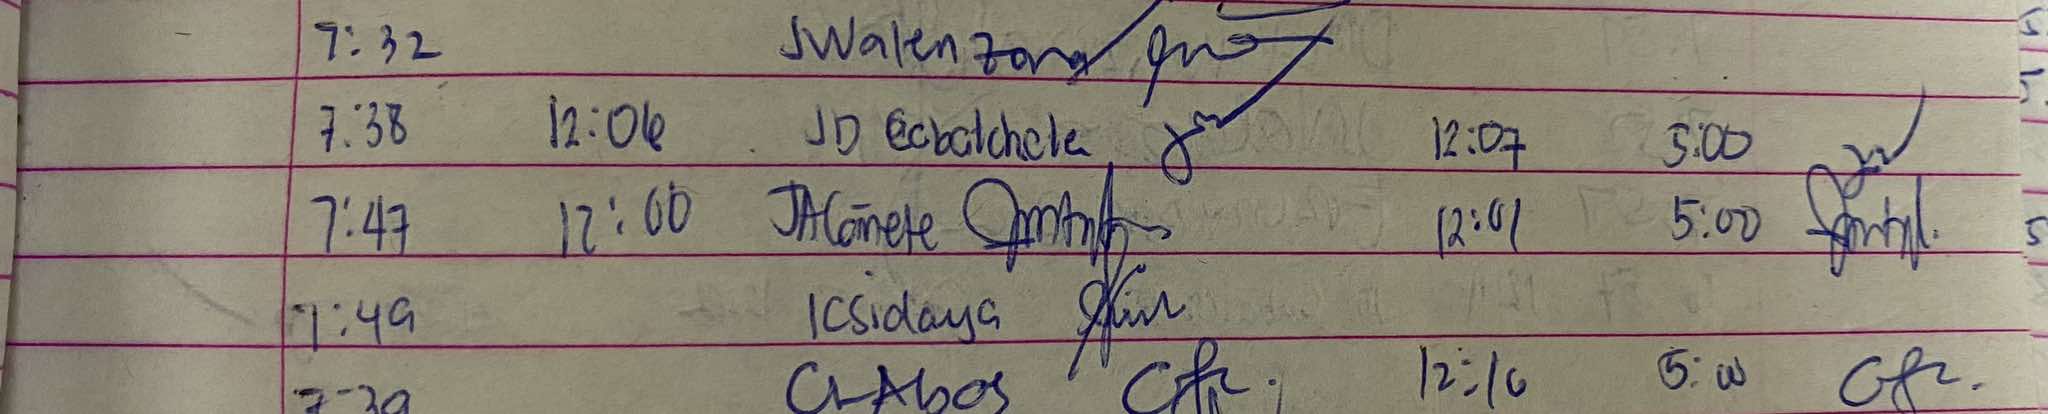 7:32 JWalenzona
7:38 12:06 JD Ecbalchele 12:07 5:00
7:47 12:00 JACañete 12:01 5:00
7:49 ICsidaya
7:39 CLAbos 12:16 5:00